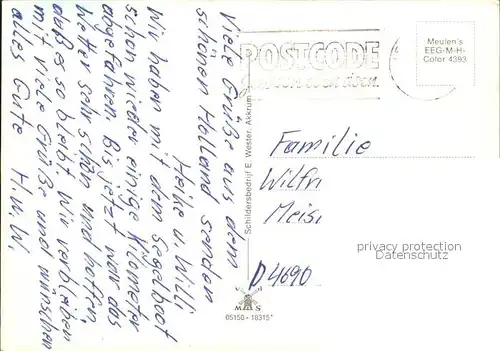 Viele Grüße aus dem
schönen Holland senden
Heike u. Willi
Wir haben mit dem Segelboot
schon wieder einige Kilometer
abgefahren. Bis jetzt war das
Wetter sehr schön und hoffen
daß es so bleibt. Wir verbleiben
mit viele Grüße und wünschen
alles Gute H. u. W.
Schildersbedrijf E. Wester, Akkrum
POSTCODE
Meulen's
EEG-M-H-
Color 4393
Familie
Wilfri
Meis
privacy protection
Datenschutz
D 4690
05150 - 18315*